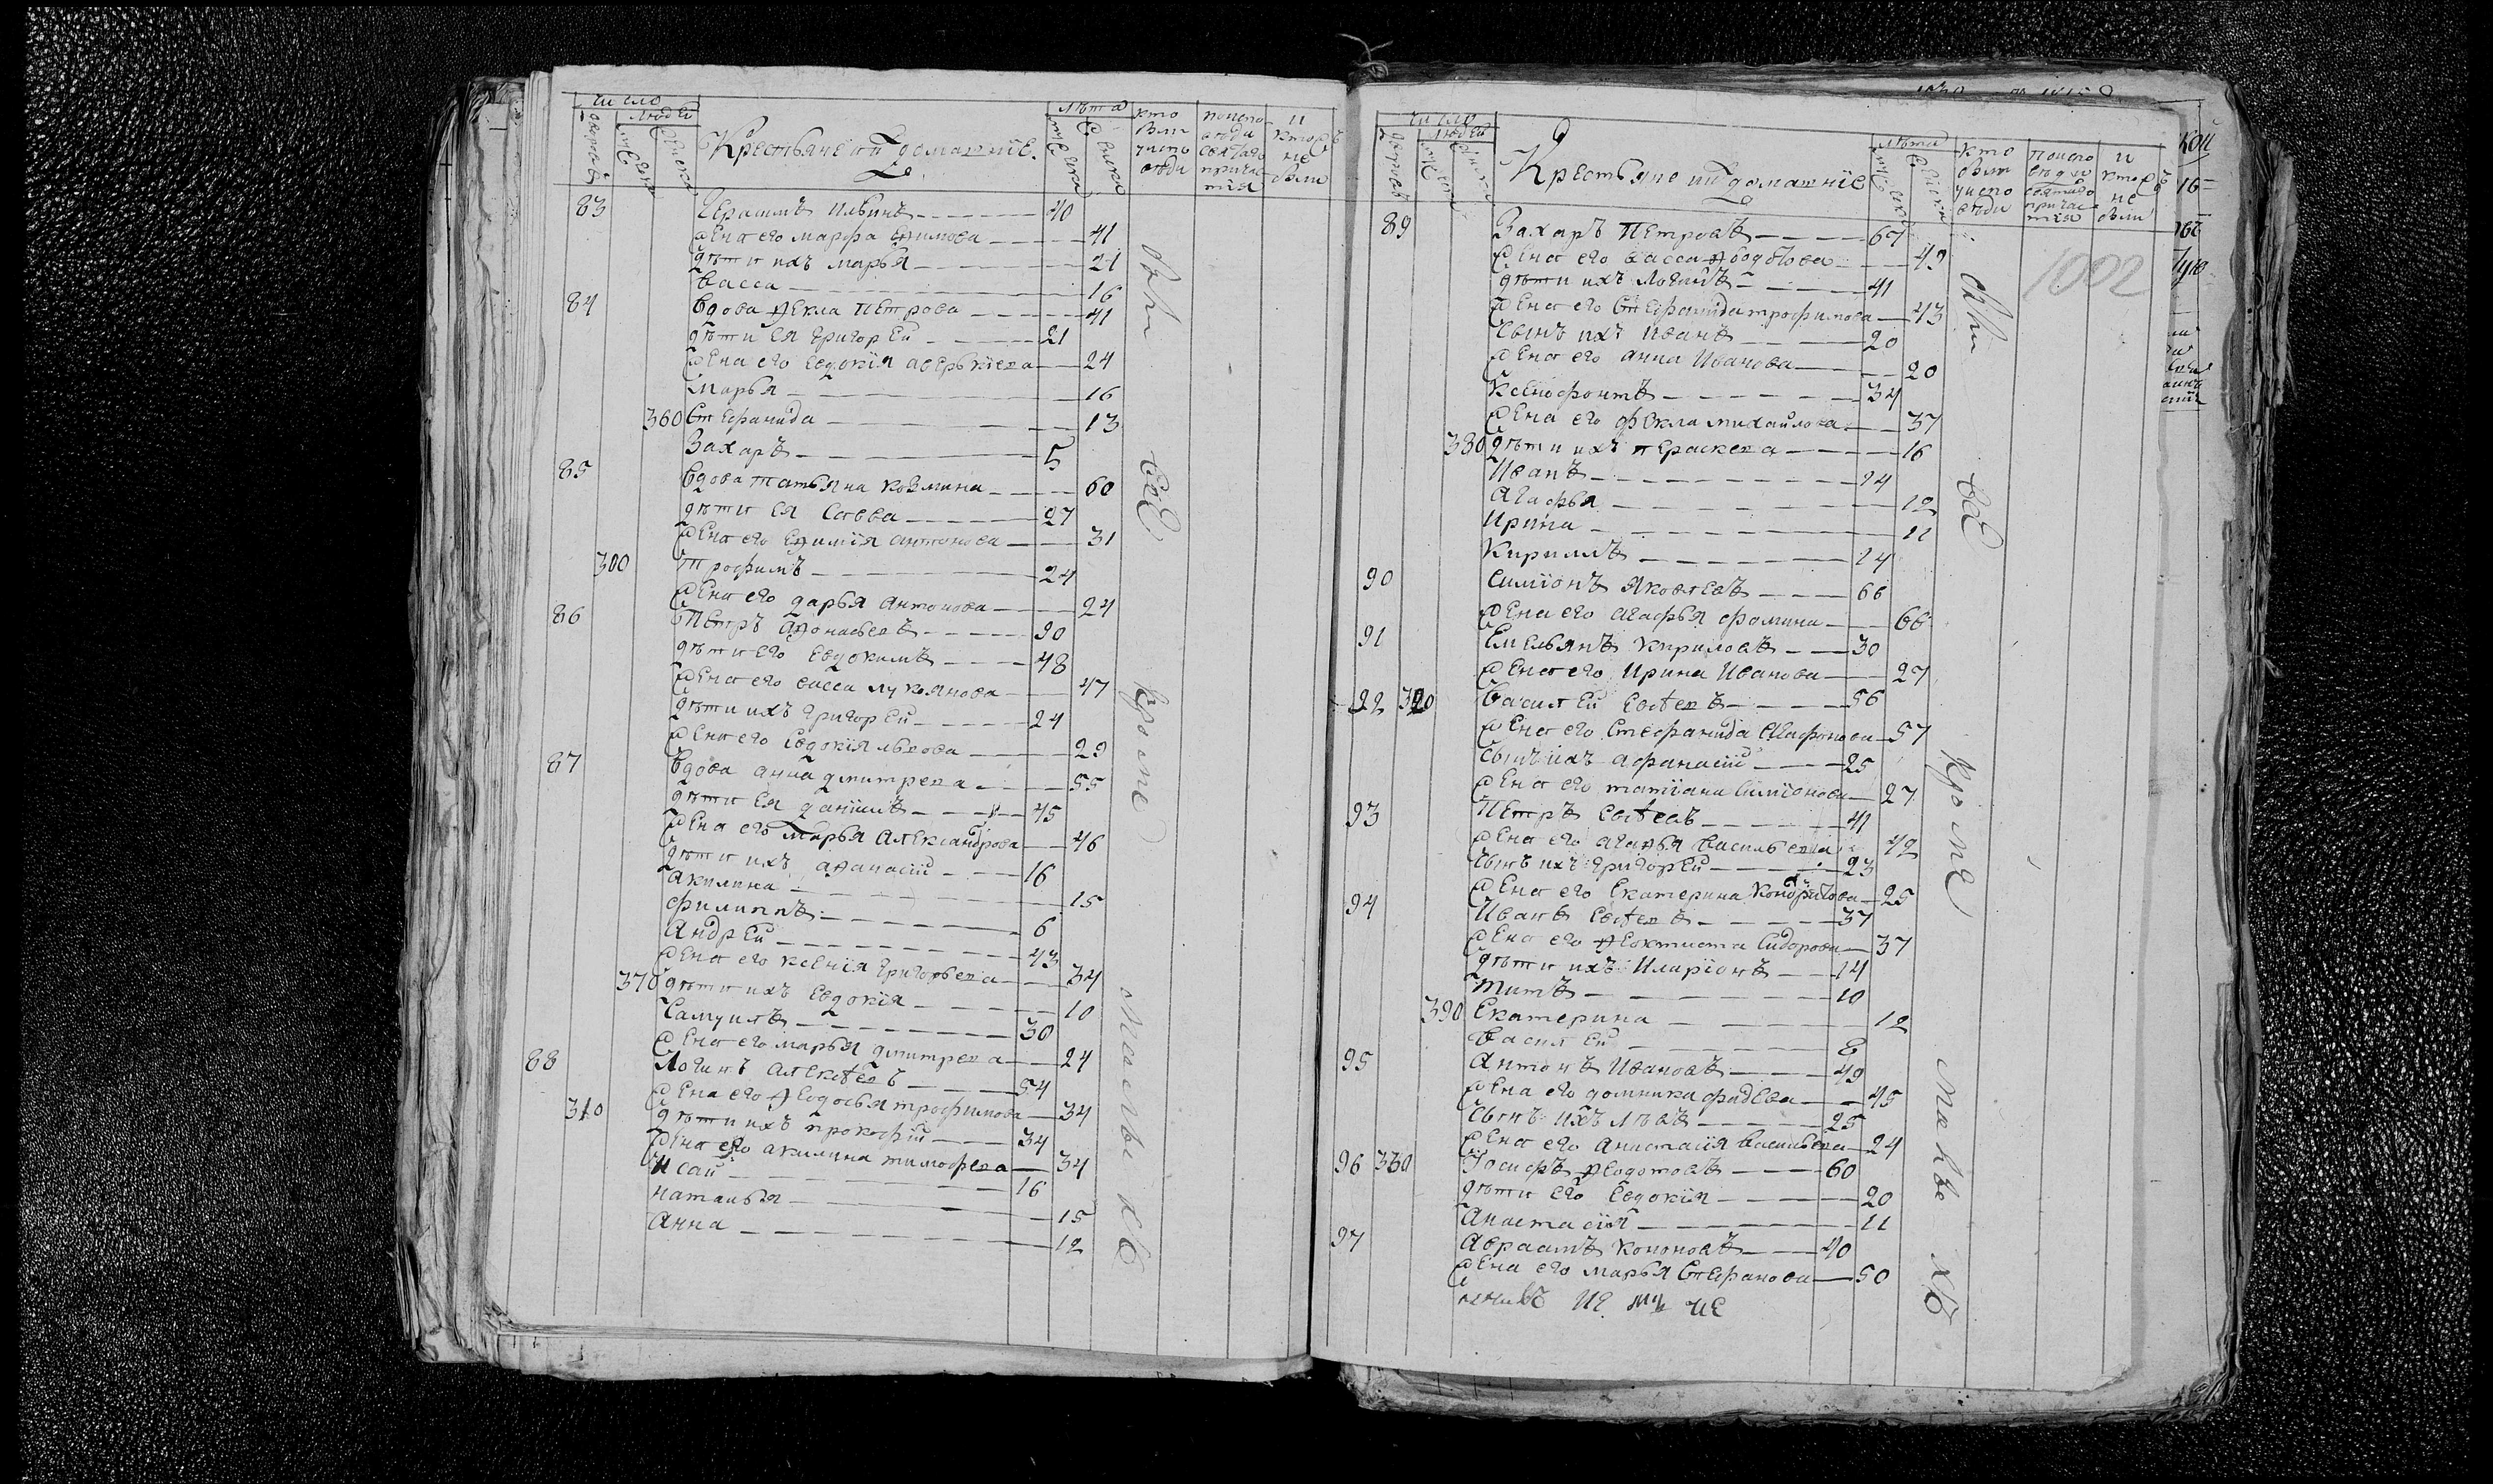 число
людей
дворовъ
Мужеска
Женска
Крестьяне ит домашніе.
лѣта
Мужеска
Женска
кто
были
уиспо
вѣди
поиспо
вѣди
святаго
прича
тія
и
кто
не
были
83 Герасимъ Ильинъ 40
жена его марфа Ефимова 41
дѣти ихъ марья 21
васса 16
84 вдова Ѳекла петрова 41
дѣти ея григорей 21
жена его Евдокія аверькіева 24
Марья 16
360 Стефанида 13
Захаръ 5
85 вдова татьяна козмина 60
дѣти ея савва 27
жена его Еѳимія антонова 31
300 трофимъ 24
жена его дарья антонова 24
86 Петръ аѳонасьевъ 90
дѣти его Евдокимъ 48
жена его васса лукоянова 47
дѣти ихъ григорей 24
жена его Евдокія львова 29
87 вдова анна дмитрева 55
дѣти ея даніилъ 45
жена его марья александрова 46
дѣти ихъ аѳанасій 16
акилина 15
филиппъ 6
Андрей 43
жена его ксенія григорьева 34
370 дѣти ихъ Евдокія 10
Самуилъ 30
жена его марья дмитрева 24
88 Логинъ алексѣевъ 54
жена его Ѳедосья трофимова 34
310 дѣти ихъ прокофій 34
жена его акилина тимофева 34
Исаи 16
наталья 15
Анна 12
были
всѣ
кроме
малыхъ
число
людей
дворовъ
Мужеска
Женска
Крестьяне ит домашніе
лѣта
Мужеска
Женска
кто
были
уиспо
вѣди
поиспо
вѣди
святаго
прича
тія
и
кто
не
были
1002
89 Захаръ Петровъ 67
жена его васса Ѳодотова 49
дѣти ихъ логинъ 41
жена его Стефанида трофимова 43
сынъ ихъ Иванъ 20
жена его анна Иванова 20
Ксенофонтъ 34
жена его фекла михайлова 37
380 дѣти ихъ параскева 16
Иванъ 14
Агафья 12
Ирина 11
Кириллъ 14
90 Симіонъ Яковлевъ 66
жена его агафья фомина 66
91 Емельянъ кириловъ 30
жена его Ирина Иванова 27
92 320 Василей Евсѣевъ 56
жена его Стефанида Агафонова 57
сынъ ихъ афанасій 25
жена его татіана Симіонова 27
93 Петръ Евсѣевъ 41
жена его агафья васильева 42
сынъ ихъ григорей 23
жена его Екатерина Кондратова 25
94 Иванъ Евсѣевъ 37
жена его Ѳеоктиста Сидорова 37
дѣти ихъ Иларіонъ 14
титъ 10
390 Екатерина 12
Василей 8
95 Антонъ Ивановъ 49
жена его домника фадѣева 45
сынъ ихъ левъ 25
жена его Анастасія васильева 24
96 330 Іосифъ Ѳедотовъ 60
дѣти его Евдокія 20
Анастасія 11
97 Авраамъ Кононовъ 40
жена его марья Стефанова 50
были
всѣ
кроме
малыхъ